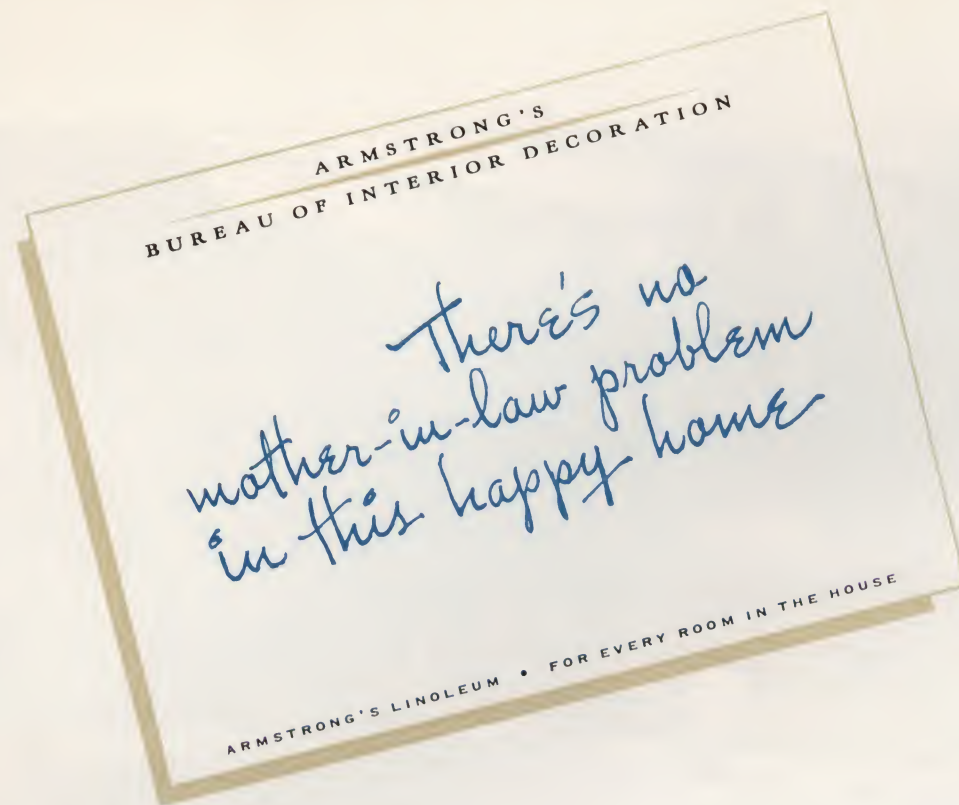 ARMSTRONG'S
BUREAU OF INTERIOR DECORATION
There's no
mother-in-law problem
in this happy home
ARMSTRONG'S LINOLEUM • FOR EVERY ROOM IN THE HOUSE